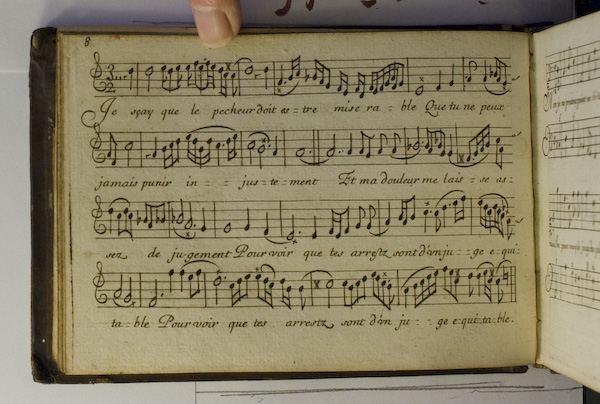 8
Je sçay que le pecheur doit es-:-tre mise-:-ra-:-ble Que tu ne peux
jamais punir in-:-:-jus-:-te-:-ment Et ma douleur me lais-:-se as-:-
sez de ju-:-gement Pour voir que tes arrestz sont d'vn ju-:-:-ge e-:-qui-:-
ta-:-ble Pour voir que tes arrestz sont d'vn ju-:-:-ge e-:-qui-:-ta-:-ble.